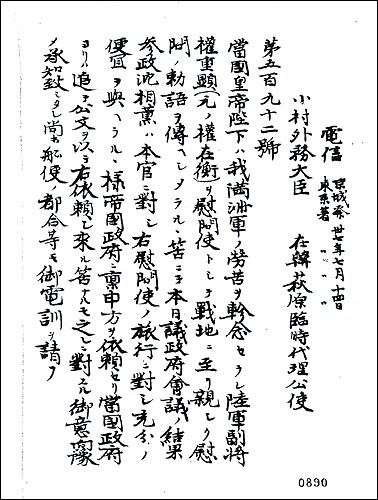 電信 京城発 卅七年七月十四日
東京着 〃 〃 〃
小村外務大臣 在韓萩原臨時代理公使
第五百九十二號
當國皇帝陛下ハ我満洲軍ノ労苦ヲ軫念セラレ陸軍副将
權重顯(元ノ權在衡)ヲ慰問使トシテ戦地ニ至リ親シク慰
問ノ勅語ヲ傳ヘシメラルヽ筈ニテ本日議政府會議ノ結果
参政沈相薫ハ本官ニ對シ右慰問使ノ旅行ニ對シ充分ノ
便宜ヲ與ヘラルヽ様帝國政府ニ稟申方ヲ依頼セリ當國政府
ヨリハ追テ公文ヲ以テ右依頼シ来ル筈ナルモ之ニ對スル御意嚮
承知致シタシ尚ホ船便ノ都合等モ御電訓ヲ請フ
0890